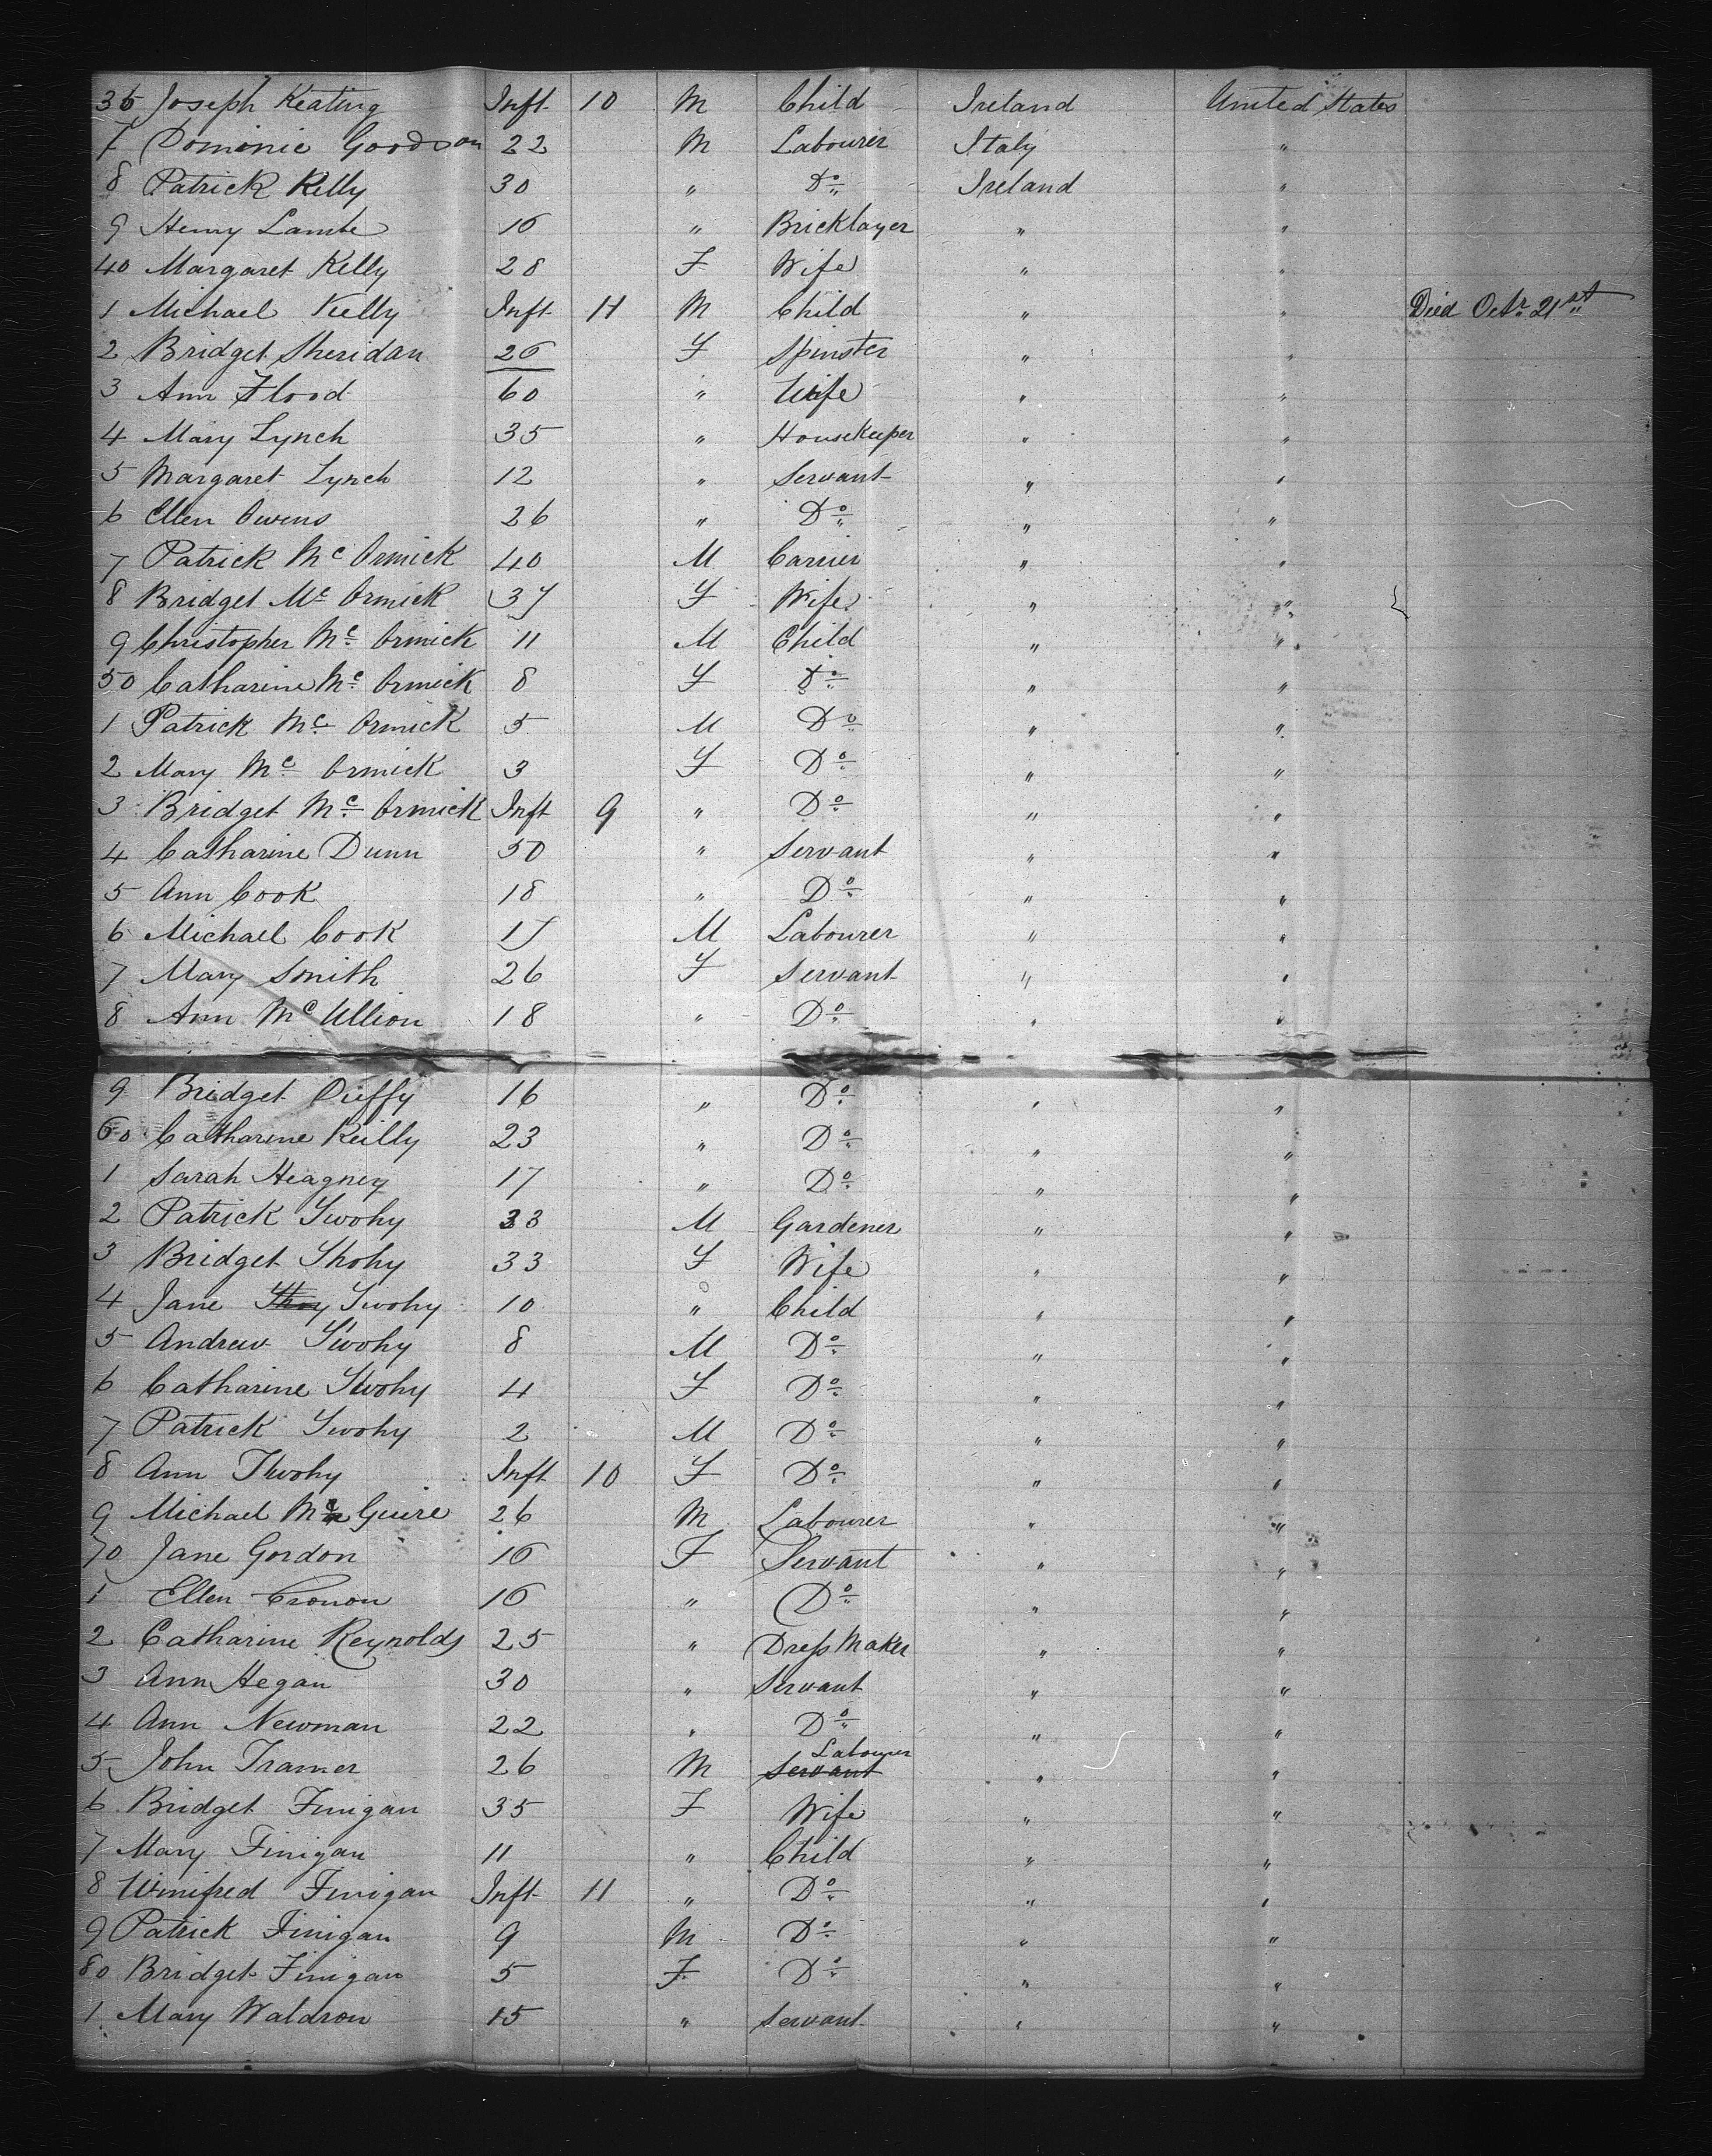 36 Joseph Keating Inft 10 M Child Ireland United States
7 Dominic Goodson 22 M Labourer Italy "
8 Patrick Kelly 30 " Do Ireland "
9 Henry Lambe 16 " Bricklayer " "
40 Margaret Kelly 28 F Wife " "
1 Michael Kelly Inft 11 M Child " " Died Octr 21st
2 Bridget Sheridan 26 F Spinster " "
3 Ann Flood 60 " Wife " "
4 Mary Lynch 35 " Housekeeper " "
5 Margaret Lynch 12 " Servant " "
6 Ellen Owens 26 " Do " "
7 Patrick Mc Ormick 40 M Carrier " "
8 Bridget Mc Ormick 37 F Wife " "
9 Christopher Mc Ormick 11 M Child " "
50 Catharine Mc Ormick 8 F Do " "
1 Patrick Mc Ormick 5 M Do " "
2 Mary Mc Ormick 3 F Do " "
3 Bridget Mc Ormick Inft 9 " Do " "
4 Catharine Dunn 50 " Servant " "
5 Ann Cook 18 " Do " "
6 Michael Cook 17 M Labourer " "
7 Mary Smith 26 F Servant " "
8 Ann Mc Ullion 18 " Do " "
9 Bridget Duffy 16 " Do " "
60 Catharine Reilly 23 " Do " "
1 Sarah Heagney 17 " Do " "
2 Patrick Twohy 33 M Gardener " "
3 Bridget Thohy 33 F Wife " "
4 Jane Thoy Twohy 10 " Child " "
5 Andrew Twohy 8 M Do " "
6 Catharine Twohy 4 F Do " "
7 Patrick Twohy 2 M Do " "
8 Ann Twohy Inft 10 F Do " "
9 Michael Mc Guire 26 M Labourer " "
70 Jane Gordon 16 F Servant " "
1 Ellen Cronon 16 " Do " "
2 Catharine Reynolds 25 " Dress Maker " "
3 Ann Hegan 30 " Servant " "
4 Ann Newman 22 " Do " "
5 John Tramer 26 M Servant Labourer " "
6 Bridget Finigan 35 F Wife " "
7 Mary Finigan 11 " Child " "
8 Winifred Finigan Inft 11 " Do " "
9 Patrick Finigan 9 M Do " "
80 Bridget Finigan 5 F Do " "
1 Mary Waldron 15 " Servant " "